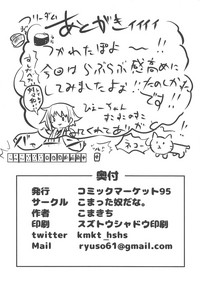 フリーダム
あとがきィィィィ
つかれたぽよ〜!!
今回はらぶらぶ感高めに
してみましたよぉ!!たのしかった
です!!
ネコー
奥付
発行 コミックマーケット95
サークル こまった奴だな。
作者 こまきち
印刷 スズトウシャドウ印刷
twitter kmkt_hshs
Mail ryuso61@gmail.com